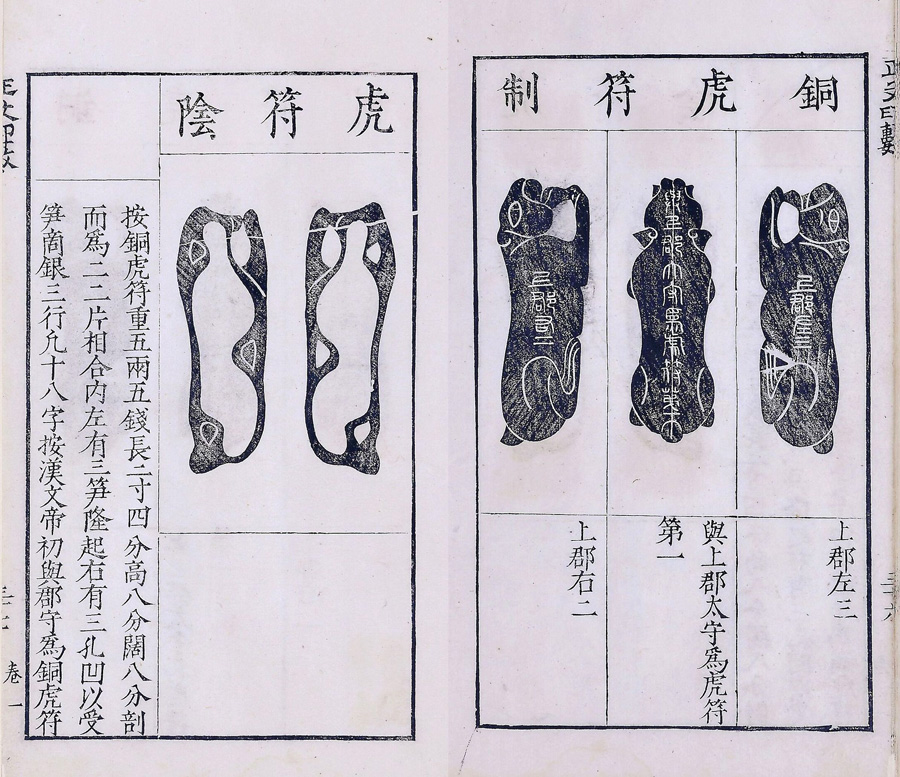 銅虎符制
上郡左三
與上郡太守爲虎符
第一
上郡右二
虎符陰
按銅虎符重五兩五錢長二寸四分高八分闊八分剖
而爲二二片相合内左有三笋隆起右有三孔凹以受
笋商銀三行凢十八字按漢文帝初與郡守爲銅虎符
卷一